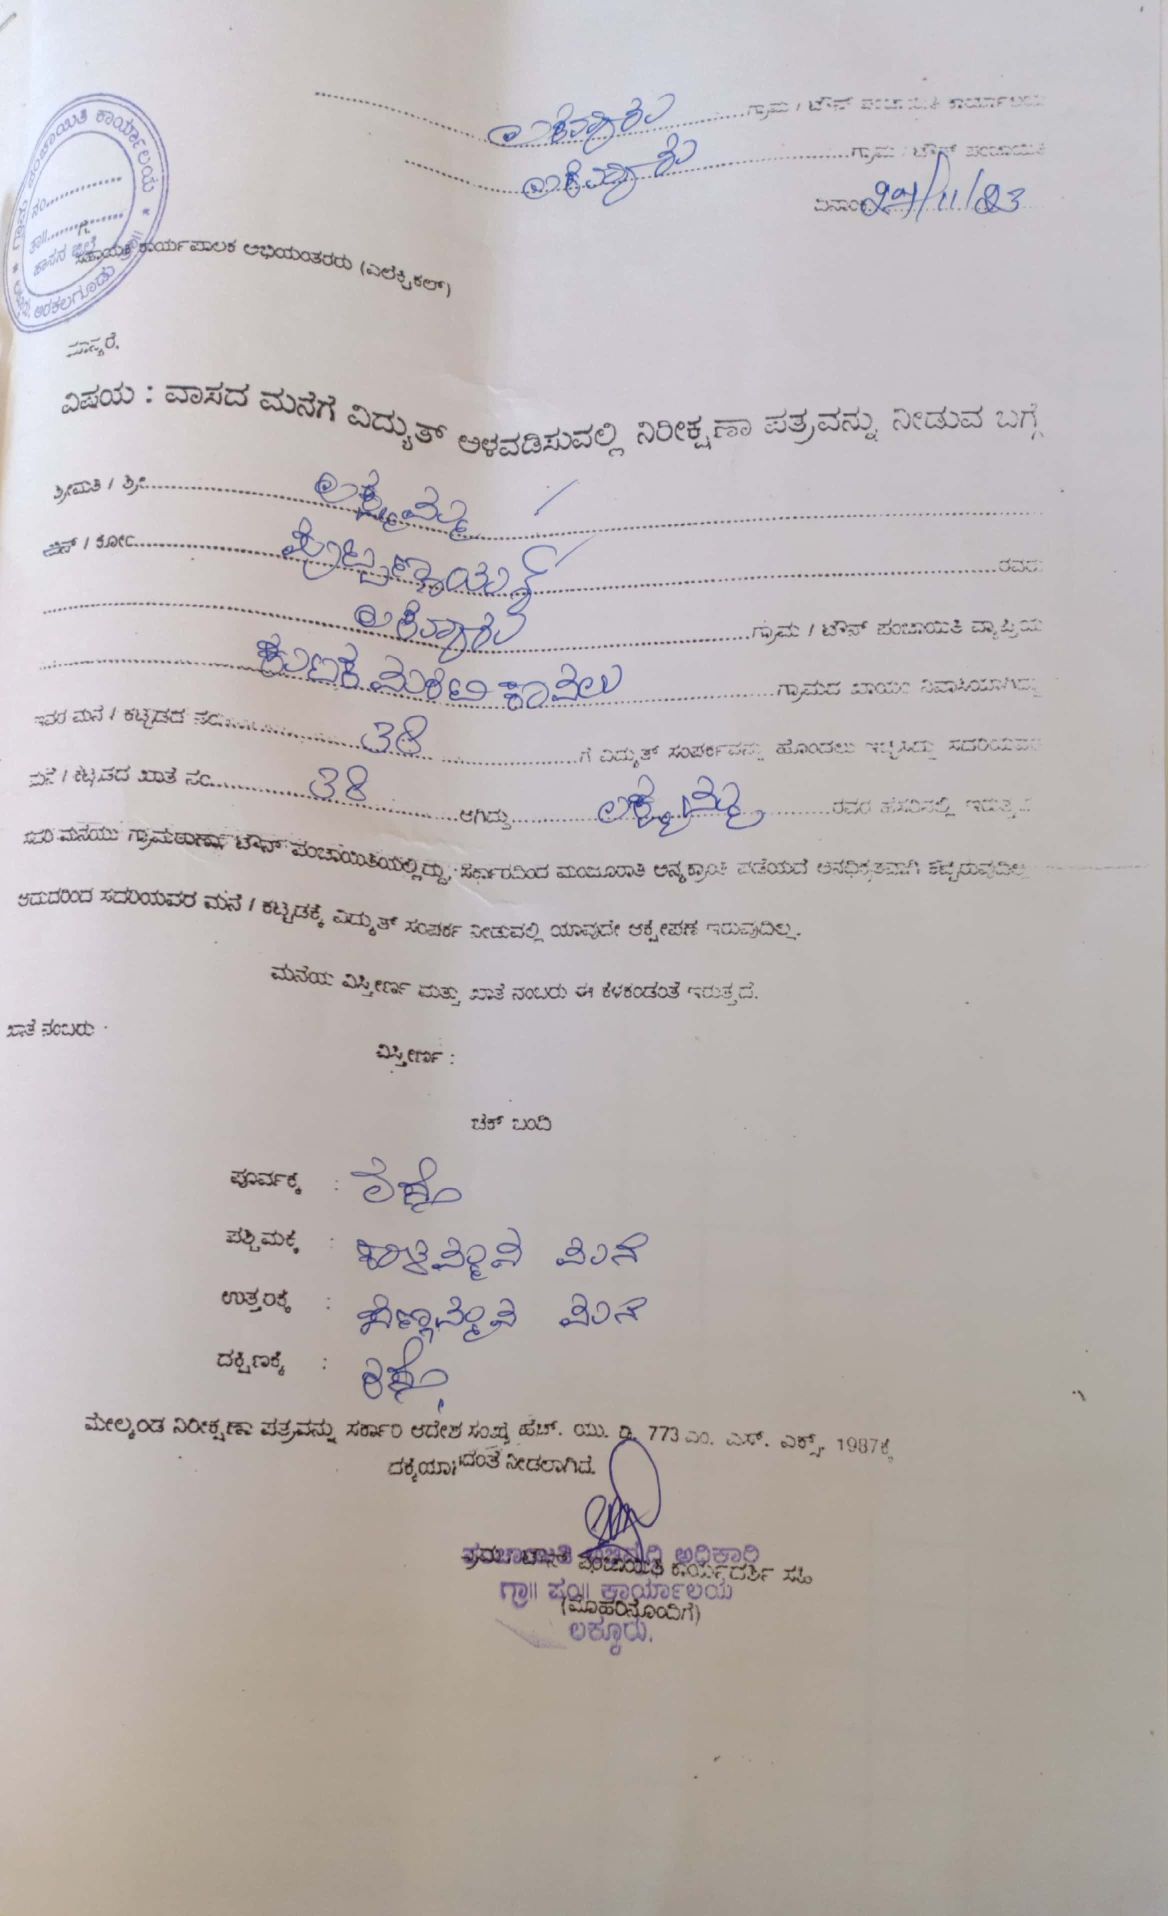 ಗ್ರಾಮ / ಟೌನ್ ಪಂಚಾಯಿತಿ ಕಾರ್ಯಾಲಯ
ಗ್ರಾಮ / ಟೌನ್ ಪಂಚಾಯಿತಿ
ದಿನಾಂಕ 29/11/23
ಗ್ರಾಮ ಪಂಚಾಯಿತಿ ಕಾರ್ಯಾಲಯ
ನಂ.
ತಾ||
ಹಾಸನ ಜಿಲ್ಲೆ
ಅರಕಲಗೂಡು ತಾ||
ಸಹಾಯಕ ಕಾರ್ಯಪಾಲಕ ಅಭಿಯಂತರರು (ಎಲೆಕ್ಟ್ರಿಕಲ್)
ಮಾನ್ಯರೆ,
ವಿಷಯ : ವಾಸದ ಮನೆಗೆ ವಿದ್ಯುತ್ ಅಳವಡಿಸುವಲ್ಲಿ ನಿರೀಕ್ಷಣಾ ಪತ್ರವನ್ನು ನೀಡುವ ಬಗ್ಗೆ
ಶ್ರೀಮತಿ / ಶ್ರೀ ಲಕ್ಷ್ಮಮ್ಮ
ಬಿನ್ / ಕೋಂ ರವರು
ಗ್ರಾಮ / ಟೌನ್ ಪಂಚಾಯಿತಿ ವ್ಯಾಪ್ತಿಯ
ಕಾವಲು ಗ್ರಾಮದ ಖಾಯಂ ನಿವಾಸಿಯಾಗಿದ್ದು
ಇವರ ಮನೆ / ಕಟ್ಟಡದ ನಂ. 38 ಗೆ ವಿದ್ಯುತ್ ಸಂಪರ್ಕವನ್ನು ಹೊಂದಲು ಇಚ್ಛಿಸಿದ್ದು ಸದರಿಯವರ
ಮನೆ / ಕಟ್ಟಡದ ಖಾತೆ ನಂ. 38 ಆಗಿದ್ದು ಲಕ್ಷ್ಮಮ್ಮ ರವರ ಹೆಸರಿನಲ್ಲಿ ಇರುತ್ತದೆ
ಸದರಿ ಮನೆಯು ಗ್ರಾಮಠಾಣಾ ಟೌನ್ ಪಂಚಾಯಿತಿಯಲ್ಲಿದ್ದು, ಸರ್ಕಾರದಿಂದ ಮಂಜೂರಾತಿ ಅನ್ಯಕ್ರಾಂತಿ ಪಡೆಯದೆ ಅನಧಿಕೃತವಾಗಿ ಕಟ್ಟಿರುವುದಿಲ್ಲ
ಆದುದರಿಂದ ಸದರಿಯವರ ಮನೆ / ಕಟ್ಟಡಕ್ಕೆ ವಿದ್ಯುತ್ ಸಂಪರ್ಕ ನೀಡುವಲ್ಲಿ ಯಾವುದೇ ಆಕ್ಷೇಪಣೆ ಇರುವುದಿಲ್ಲ.
ಮನೆಯ ವಿಸ್ತೀರ್ಣ ಮತ್ತು ಖಾತೆ ನಂಬರು ಈ ಕೆಳಕಂಡಂತೆ ಇರುತ್ತದೆ.
ಖಾತೆ ನಂಬರು :
ವಿಸ್ತೀರ್ಣ :
ಚಕ್ ಬಂದಿ
ಪೂರ್ವಕ್ಕೆ : ರಸ್ತೆ
ಪಶ್ಚಿಮಕ್ಕೆ : ಮನೆ
ಉತ್ತರಕ್ಕೆ : ಮನೆ
ದಕ್ಷಿಣಕ್ಕೆ : ರಸ್ತೆ
ಮೇಲ್ಕಂಡ ನಿರೀಕ್ಷಣಾ ಪತ್ರವನ್ನು ಸರ್ಕಾರಿ ಆದೇಶ ಸಂಖ್ಯೆ ಹೆಚ್. ಯು. ಡಿ. 773 ಎಂ. ಎಸ್. ಎಕ್ಸ್. 1987ಕ್ಕೆ
ದಕ್ಕೆಯಾಗದಂತೆ ನೀಡಲಾಗಿದೆ.
ಪಂಚಾಯಿತಿ ಅಭಿವೃದ್ಧಿ ಅಧಿಕಾರಿ
ಗ್ರಾಮ ಟೌನ್ ಪಂಚಾಯಿತಿ ಕಾರ್ಯದರ್ಶಿ ಸಹಿ
ಗ್ರಾ|| ಪಂ|| ಕಾರ್ಯಾಲಯ
(ಮೊಹರಿನೊಂದಿಗೆ)
ಲಕ್ಕೂರು.